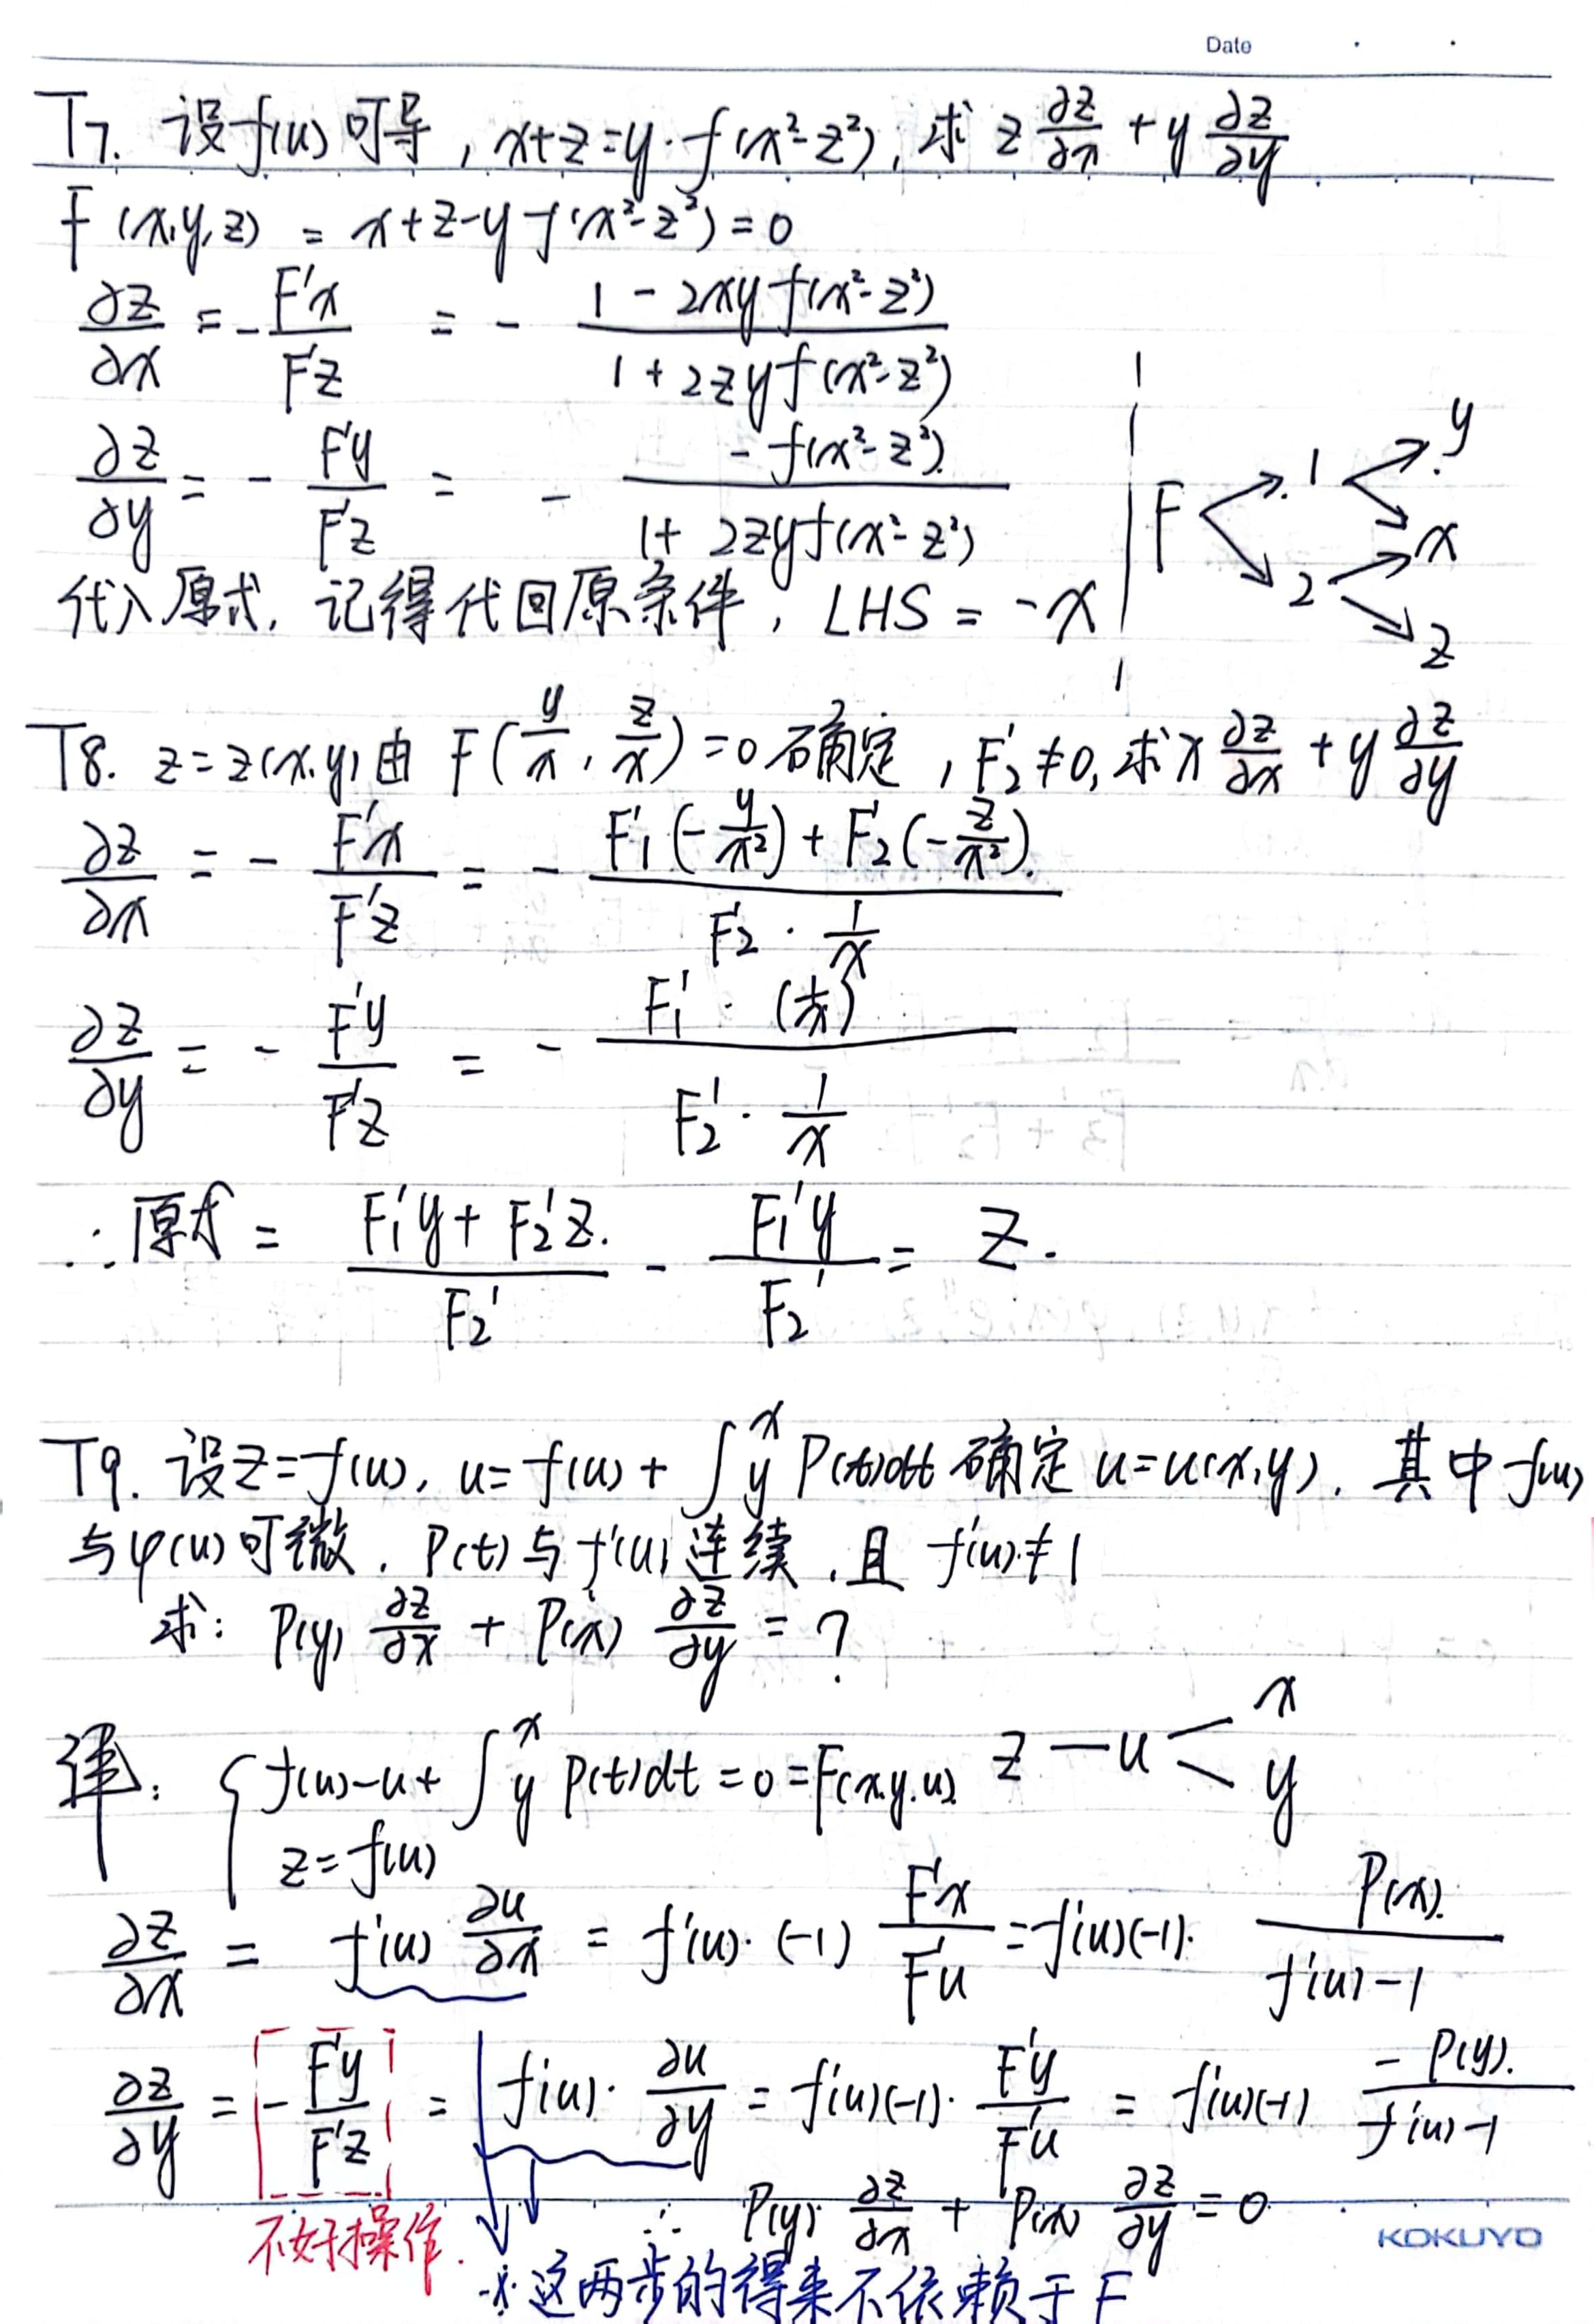 Date
T7. 设f(u)可导, x+z=y·f(x²-z²), 求 z ∂z/∂x + y ∂z/∂y
F(x,y,z) = x+z-yf(x²-z²)=0
∂z/∂x = -F'x/F'z = - (1-2xyf(x²-z²))/(1+2zyf(x²-z²))
∂z/∂y = -F'y/F'z = - (-f(x²-z²))/(1+2zyf(x²-z²))
F 1 2 y x x z
代入原式, 记得代回原条件, LHS = -x
T8. z=z(x,y)由 F(y/x, z/x)=0 确定, F'2≠0, 求x ∂z/∂x + y ∂z/∂y
∂z/∂x = -F'x/F'z = - (F'1(-y/x²)+F'2(-z/x²))/(F'2·1/x)
∂z/∂y = -F'y/F'z = - (F1'·(1/x))/(F2'·1/x)
∴原式 = (F1'y+F2'z)/F2' - F1'y/F2' = z.
T9. 设z=f(u), u=f(u)+∫_y^x P(t)dt 确定 u=u(x,y). 其中f(u)
与φ(u)可微. P(t)与f'(u)连续, 且 f'(u)≠1
求: P(y) ∂z/∂x + P(x) ∂z/∂y = ?
z — u < x y
解: { f(u)-u+∫_y^x P(t)dt=0=F(x,y,u)
z=f(u)
∂z/∂x = f'(u) ∂u/∂x = f'(u)·(-1) F'x/F'u = f'(u)(-1)· P(x)/(f'(u)-1)
∂z/∂y = -F'y/F'z = f'(u)·∂u/∂y = f'(u)(-1)·F'y/F'u = f'(u)(-1) -P(y)/(f'(u)-1)
∴ P(y) ∂z/∂x + P(x) ∂z/∂y = 0
不好操作.
※这两步的得来不依赖于F
KOKUYO